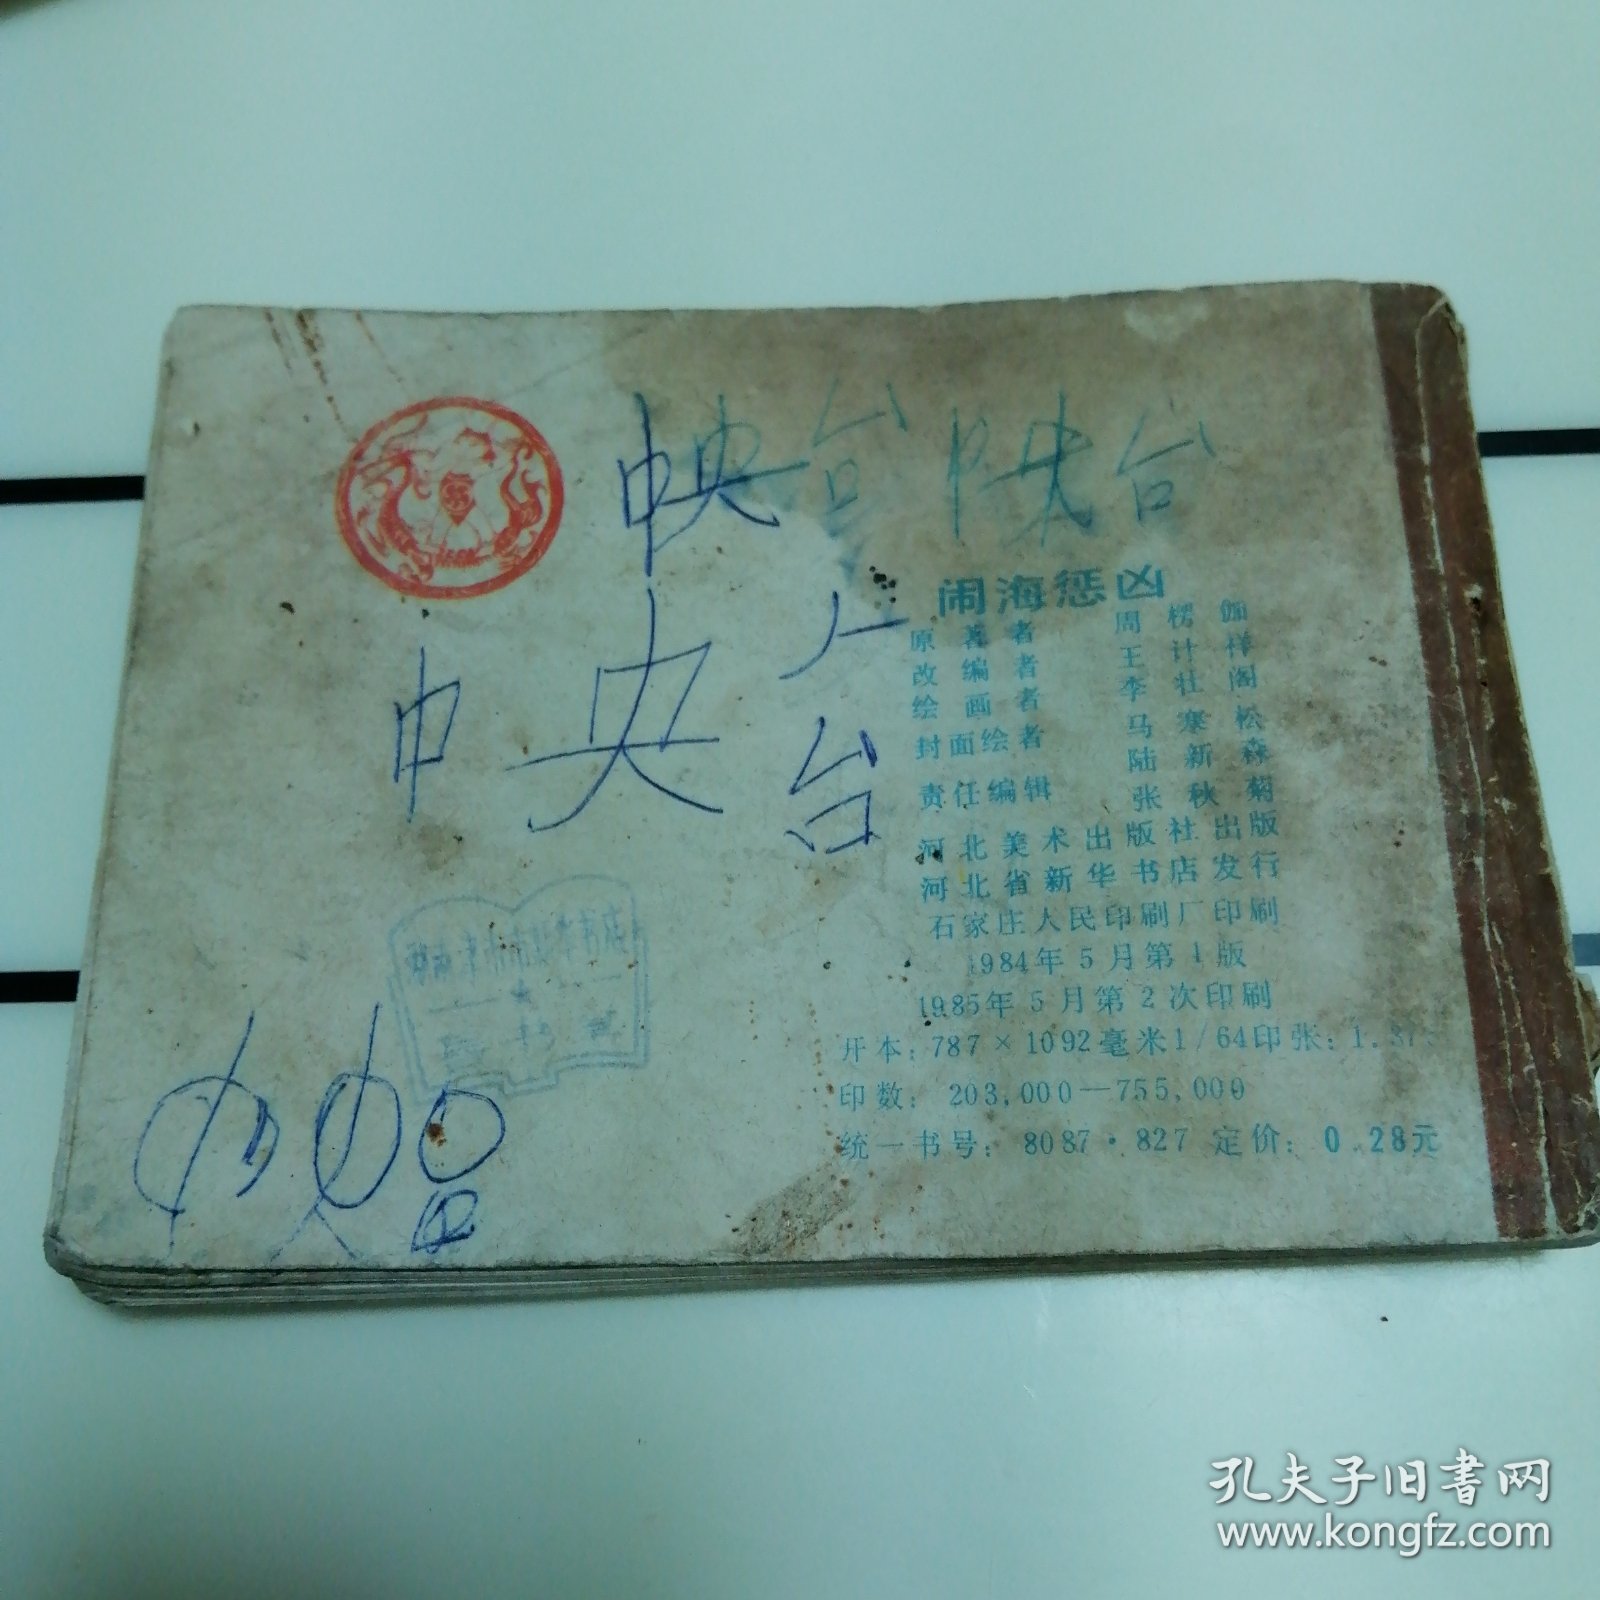 中央台 中央台
中央
台
闹海惩凶
原著者 周楞伽
改编者 王计祥
绘画者 李壮阁
封面绘者 马寒松
陆新森
责任编辑 张秋菊
河北美术出版社出版
河北省新华书店发行
石家庄人民印刷厂印刷
1984年5月第1版
1985年5月第2次印刷
开本:787×1092毫米1/64印张:1.375
印数:203,000—755,000
统一书号:8087·827 定价:0.28元
孔夫子旧书网
www.kongfz.com